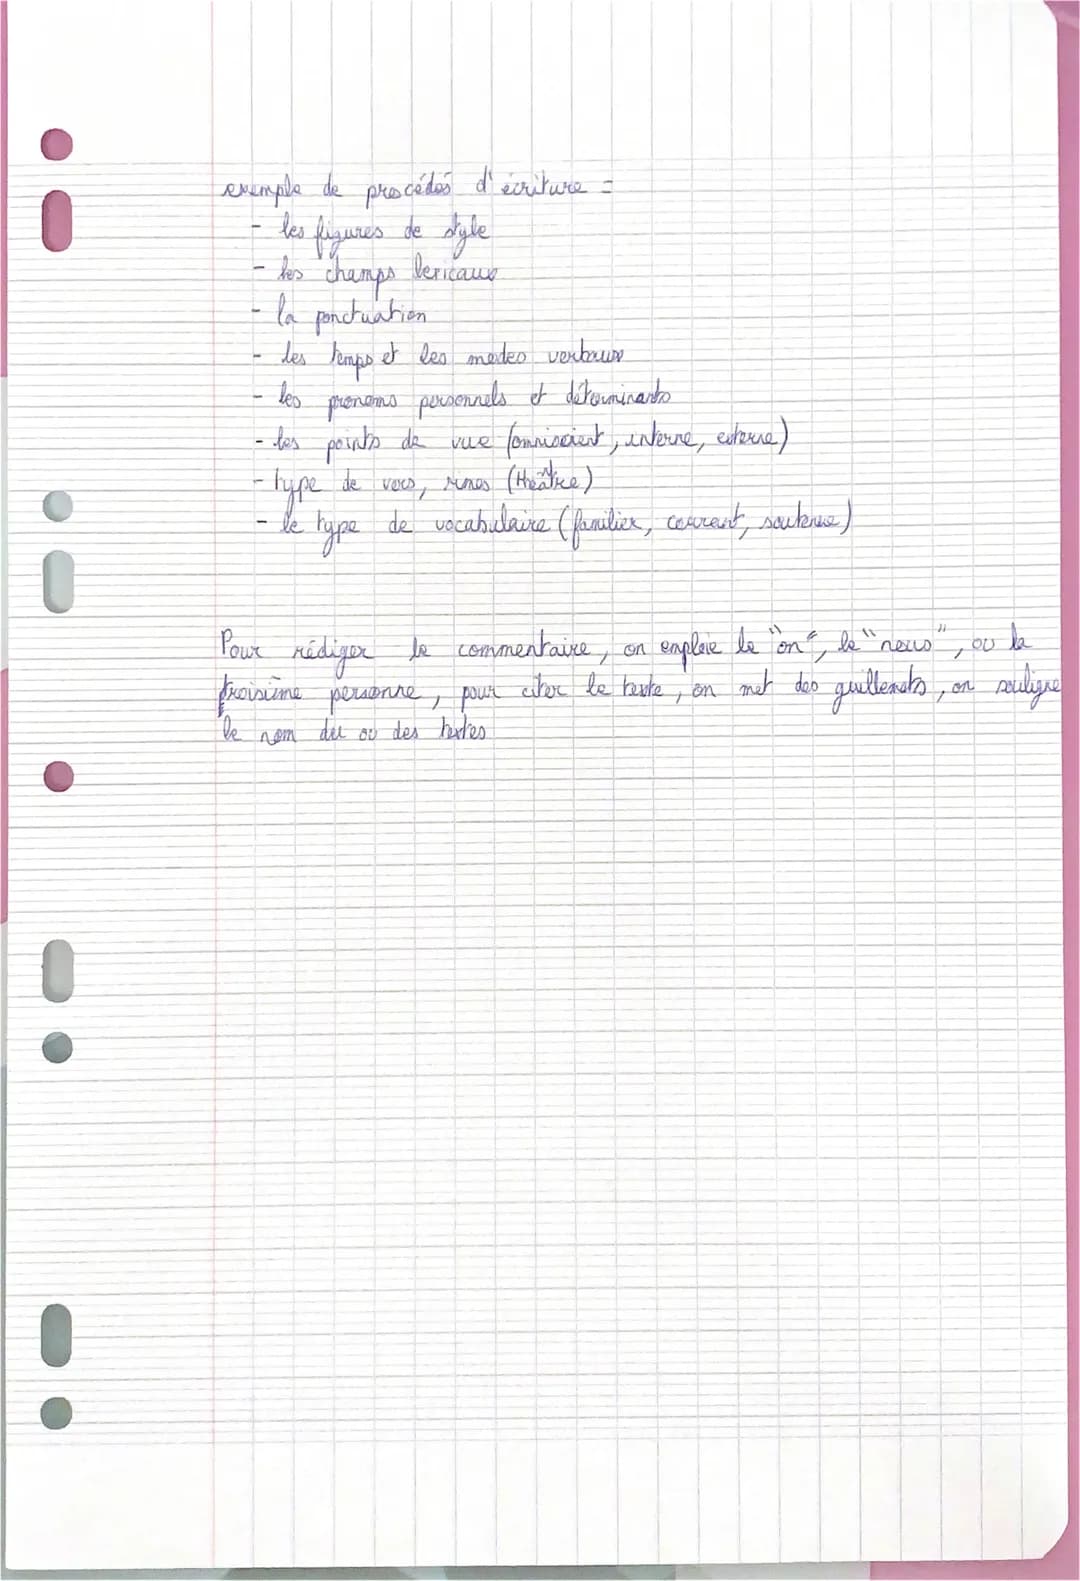 exemple de procédés d'écriture =
- les figures de style
- les champs lexicaux
- la ponctuation
- les temps et les modes verbaux
- les pronoms personnels et déterminants
- les points de vue (omniscient, interne, externe)
- type de vers, rimes (théâtre)
- le type de vocabulaire (familier, courant, soutenue)
Pour rédiger le commentaire, on emploie le "on", le "nous", ou la
troisième personne, pour citer le texte, on met des guillemets, on souligne
le nom du ou des textes